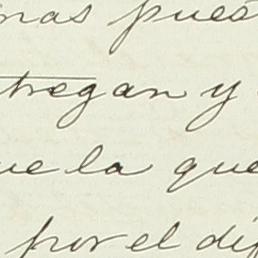 mas pues
tregan y
ue la que
por el dif